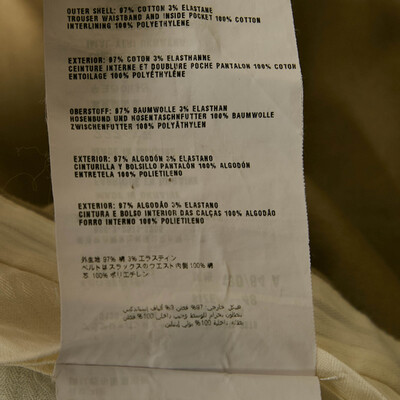 OUTER SHELL: 97% COTTON 3% ELASTANE
TROUSER WAISTBAND AND INSIDE POCKET 100% COTTON
INTERLINING 100% POLYETHYLENE
EXTERIOR: 97% COTON 3% ELASTHANNE
CEINTURE INTERNE ET DOUBLURE POCHE PANTALON 100% COTON
ENTOILAGE 100% POLYÉTHYLÈNE
OBERSTOFF: 97% BAUMWOLLE 3% ELASTHAN
HOSENBUND UND HOSENTASCHNFUTTER 100% BAUMWOLLE
ZWISCHENFUTTER 100% POLYÄTHYLEN
EXTERIOR: 97% ALGODÓN 3% ELASTANO
CINTURILLA Y BOLSILLO PANTALÓN 100% ALGODÓN
ENTRETELA 100% POLIETILENO
EXTERIOR: 97% ALGODÃO 3% ELASTANO
CINTURA E BOLSO INTERIOR DAS CALÇAS 100% ALGODÃO
FORRO INTERNO 100% POLIETILENO
外生地 97% 綿 3% エラスティン
ベルトはスラックスのウエスト内製 100% 綿
芯 100% ポリエチレン